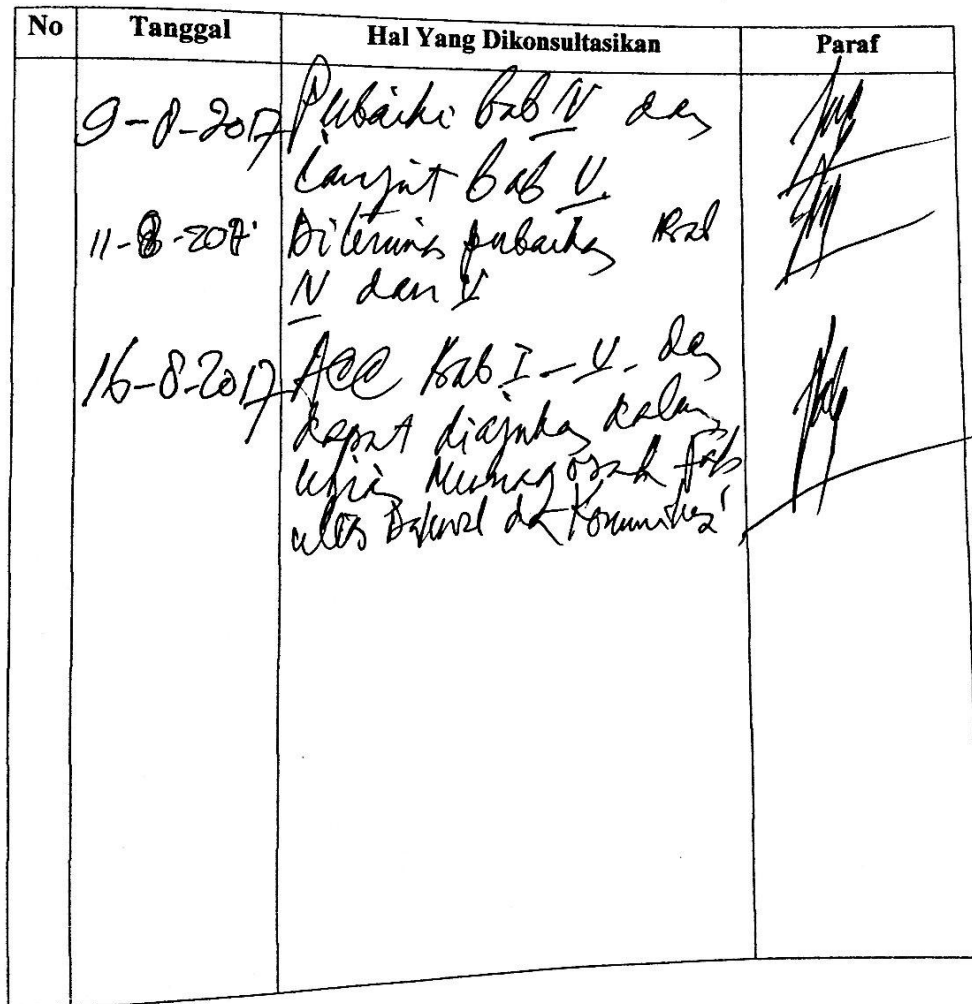 No Tanggal Hal Yang Dikonsultasikan Paraf
9-8-2017 Perbaiki bab IV dan
Lanjut bab V.
11-8-2017 Diterima perbaikan Bab
IV dan V
16-8-2017 ACC Bab I - V dan
dapat diajukan dalam
ujian Munaqosah Fak
ultas Dakwah dan Komunikasi